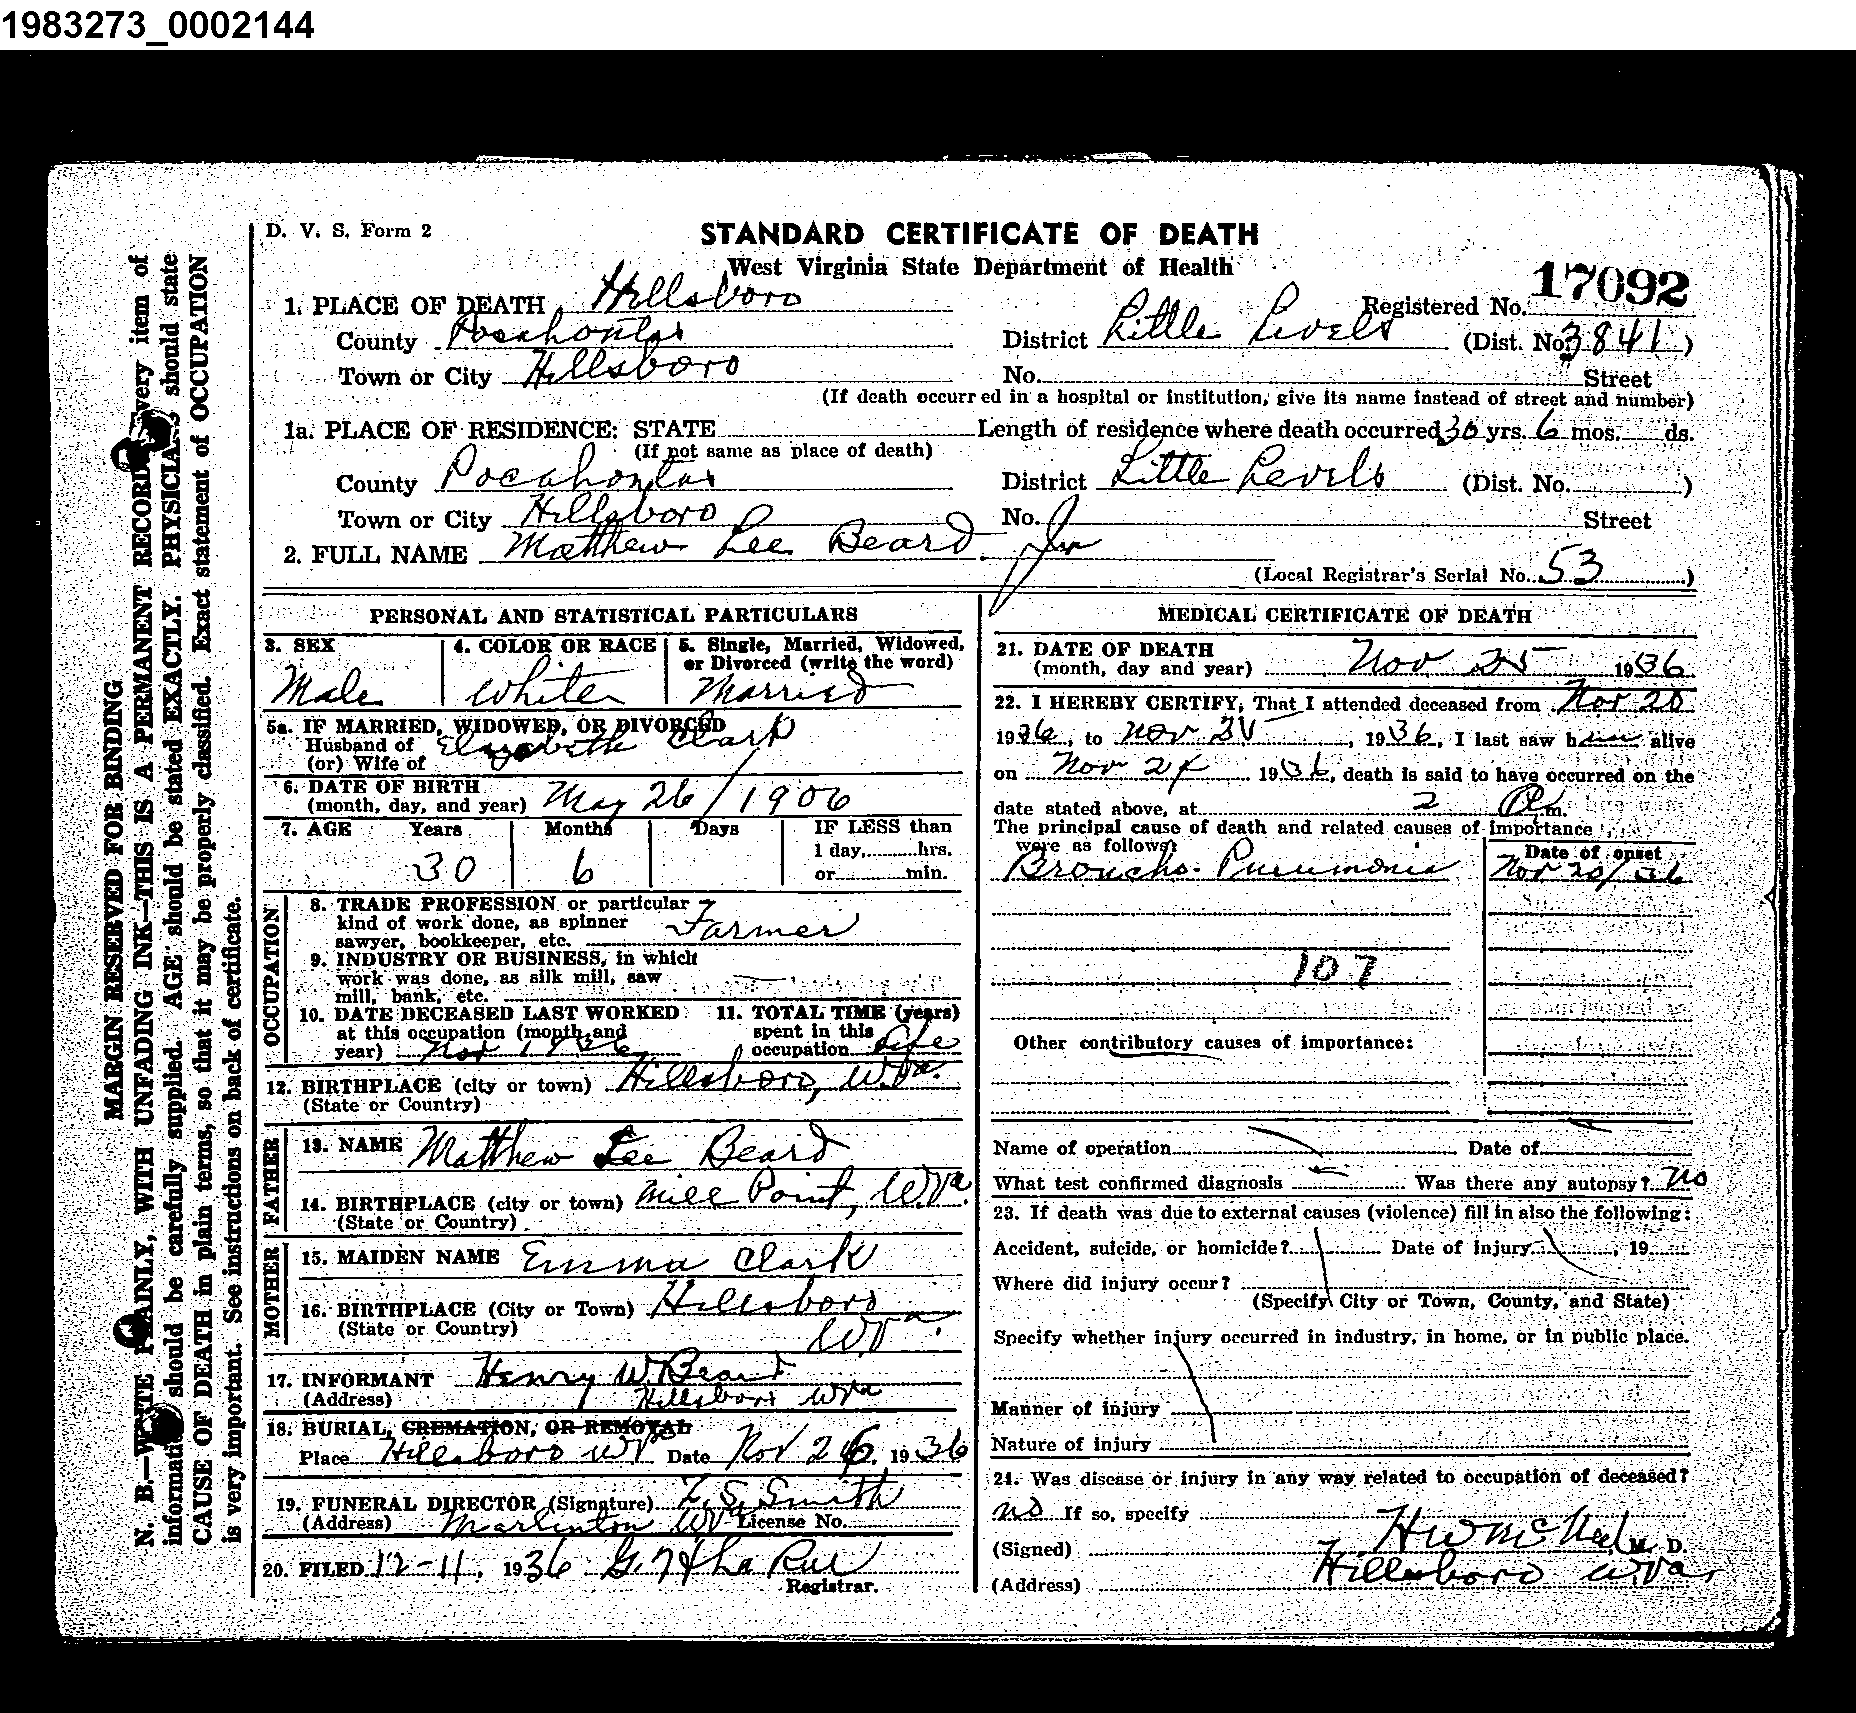 1983273_0002144
D. V. S. Form 2
STANDARD CERTIFICATE OF DEATH
West Virginia State Department of Health
17092
1. PLACE OF DEATH Hillsboro Registered No.
County Pocahontas District Little Levels (Dist. No. 3841)
Town or City Hillsboro No. Street
(If death occurred in a hospital or institution, give its name instead of street and number)
1a. PLACE OF RESIDENCE: STATE Length of residence where death occurred 30 yrs. 6 mos. ds.
(If not same as place of death)
County Pocahontas District Little Levels (Dist. No. )
Town or City Hillsboro No. Street
2. FULL NAME Matthew Lee Beard. Jr
(Local Registrar's Serial No. 53 )
PERSONAL AND STATISTICAL PARTICULARS
3. SEX 4. COLOR OR RACE 5. Single, Married, Widowed,
or Divorced (write the word)
Male White Married
5a. IF MARRIED, WIDOWED, OR DIVORCED
Husband of Elizabeth Clark
(or) Wife of
6. DATE OF BIRTH
(month, day, and year) May 26/1906
7. AGE Years Months Days IF LESS than
1 day, hrs.
30 6 or min.
OCCUPATION
8. TRADE PROFESSION or particular
kind of work done, as spinner Farmer
sawyer, bookkeeper, etc.
9. INDUSTRY OR BUSINESS, in which
work was done, as silk mill, saw
mill, bank, etc.
10. DATE DECEASED LAST WORKED 11. TOTAL TIME (years)
at this occupation (month and spent in this
year) Nov 1936 occupation Life
12. BIRTHPLACE (city or town) Hillsboro, W.Va.
(State or Country)
FATHER
13. NAME Matthew Lee Beard
14. BIRTHPLACE (city or town) Mill Point, W.Va.
(State or Country)
MOTHER
15. MAIDEN NAME Emma Clark
16. BIRTHPLACE (City or Town) Hillsboro
(State or Country) W.Va.
17. INFORMANT Henry W. Beard
(Address) Hillsboro W Va
18. BURIAL, CREMATION, OR REMOVAL
Place Hillsboro W Va Date Nov 26, 1936
19. FUNERAL DIRECTOR (Signature) F. S. Smith
(Address) Marlinton W Va License No.
20. FILED 12-11, 1936
Registrar.
MEDICAL CERTIFICATE OF DEATH
21. DATE OF DEATH
(month, day and year) Nov 25 1936
22. I HEREBY CERTIFY, That I attended deceased from Nov 20
1936, to Nov 25, 1936, I last saw him alive
on Nov 24 1936, death is said to have occurred on the
date stated above, at 2 m.
The principal cause of death and related causes of importance
were as follows: Date of onset
Broncho-Pneumonia Nov 20/36
107
Other contributory causes of importance:
Name of operation Date of
What test confirmed diagnosis Was there any autopsy? No
23. If death was due to external causes (violence) fill in also the following:
Accident, suicide, or homicide? Date of injury , 19
Where did injury occur?
(Specify City or Town, County, and State)
Specify whether injury occurred in industry, in home, or in public place.
Manner of injury
Nature of injury
24. Was disease or injury in any way related to occupation of deceased?
no If so, specify
(Signed) H W McNeel, M. D.
(Address) Hillsboro W.Va.
MARGIN RESERVED FOR BINDING
N. B.—WRITE PLAINLY, WITH UNFADING INK—THIS IS A PERMANENT RECORD. Every item of
information should be carefully supplied. AGE should be stated EXACTLY. PHYSICIANS should state
CAUSE OF DEATH in plain terms, so that it may be properly classified. Exact statement of OCCUPATION
is very important. See instructions on back of certificate.